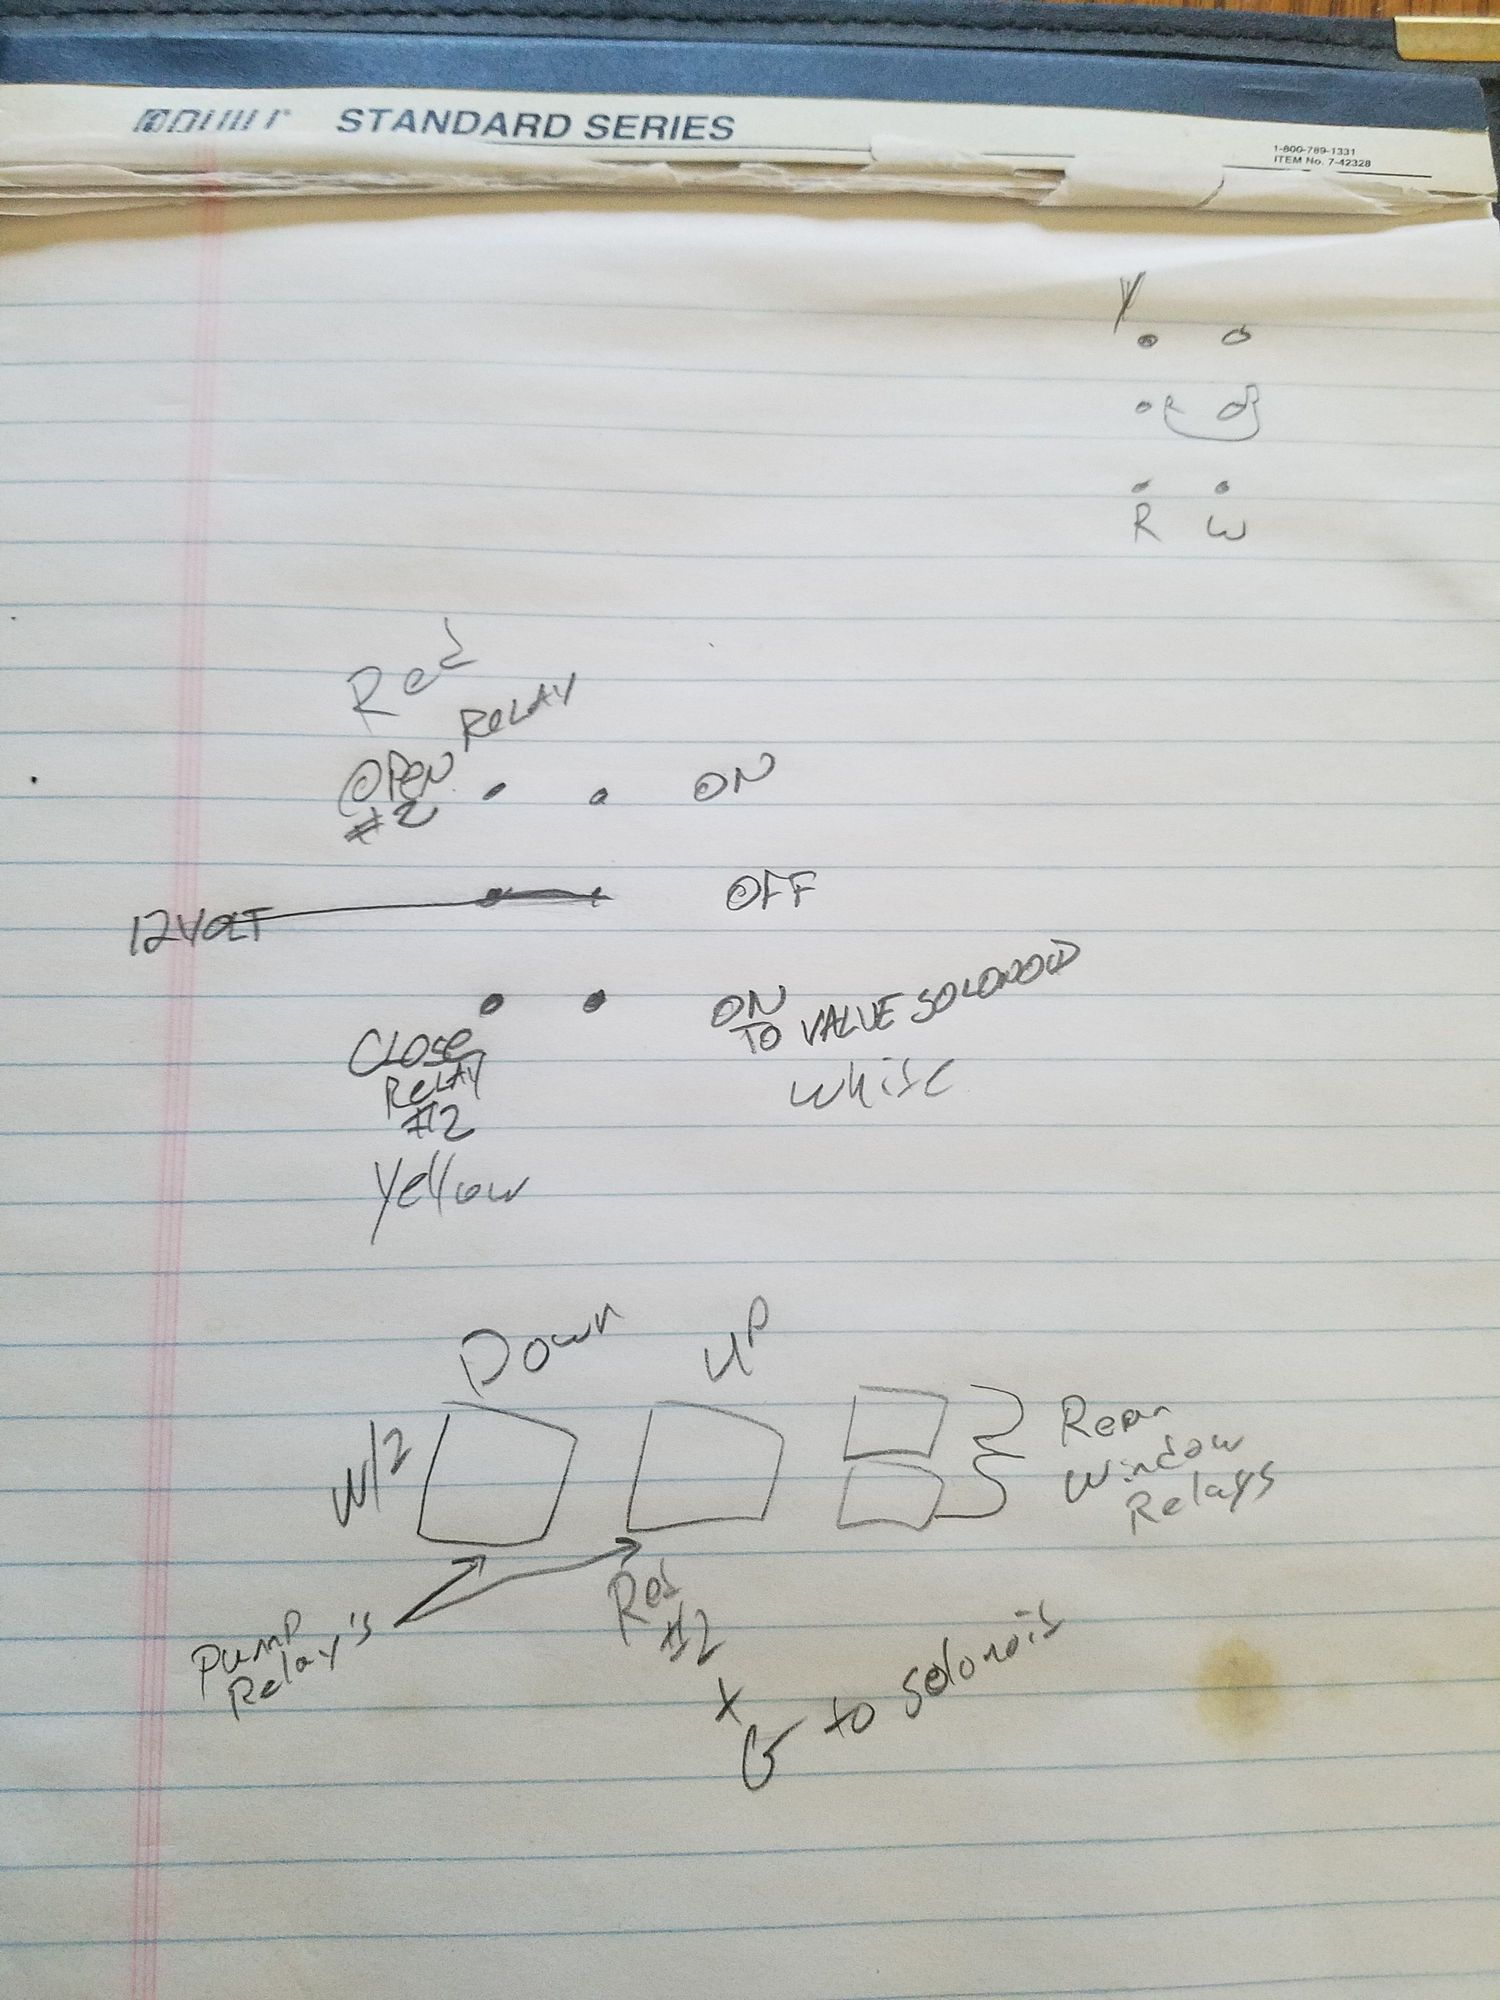 STANDARD SERIES
1-800-789-1331
ITEM No. 7-42328
Y
R W
Red
OPEN RELAY
#2
ON
12 VOLT
OFF
CLOSE
RELAY
#2
ON
TO VALUE SOLONOID
White
Yellow
Down
UP
W/2
Rear
Window
Relays
Pump
Relay's
Red
#2
+
G to solonoid